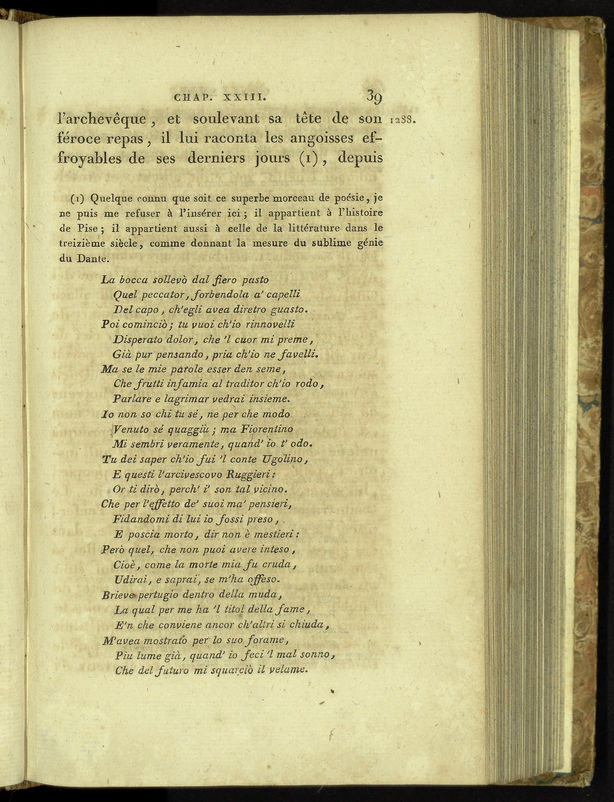 CHAP. XXIII. 39
l'archevêque, et soulevant sa tête de son 1288.
féroce repas, il lui raconta les angoisses ef-
froyables de ses derniers jours (1), depuis
(1) Quelque connu que soit ce superbe morceau de poésie, je
ne puis me refuser à l'insérer ici; il appartient à l'histoire
de Pise; il appartient aussi à celle de la littérature dans le
treizième siècle, comme donnant la mesure du sublime génie
du Dante.
La bocca sollevò dal fiero pasto
Quel peccator, forbendola a' capelli
Del capo, ch'egli avea diretro guasto.
Poi cominciò; tu vuoi ch'io rinnovelli
Disperato dolor, che 'l cuor mi preme,
Già pur pensando, pria ch'io ne favelli.
Ma se le mie parole esser den seme,
Che frutti infamia al traditor ch'io rodo,
Parlare e lagrimar vedrai insieme.
Io non so chi tu sé, ne per che modo
Venuto sé quaggiù; ma Fiorentino
Mi sembri veramente, quand' io t' odo.
Tu dei saper ch'io fui 'l conte Ugolino,
E questi l'arcivescovo Ruggieri:
Or ti dirò, perch' i' son tal vicino.
Che per l'effetto de' suoi ma' pensieri,
Fidandomi di lui io fossi preso,
E poscia morto, dir non è mestieri:
Però quel, che non puoi avere inteso,
Cioè, come la morte mia fu cruda,
Udirai, e saprai, se m'ha offeso.
Brieve pertugio dentro della muda,
La qual per me ha 'l titol della fame,
E'n che conviene ancor ch'altri si chiuda,
M'avea mostrato per lo suo forame,
Piu lume già, quand' io feci 'l mal sonno,
Che del futuro mi squarciò il velame.